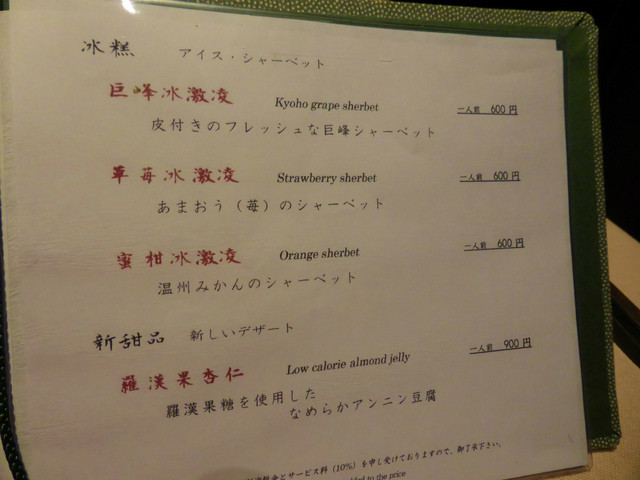 冰糕 アイス・シャーベット
巨峰冰激凌 Kyoho grape sherbet 一人前 600円
皮付きのフレッシュな巨峰シャーベット
草苺冰激凌 Strawberry sherbet 一人前 600円
あまおう（苺）のシャーベット
蜜柑冰激凌 Orange sherbet 一人前 600円
温州みかんのシャーベット
新甜品 新しいデザート
羅漢果杏仁 Low calorie almond jelly 一人前 900円
羅漢果糖を使用した
なめらかアンニン豆腐
とサービス料（10%）を申し受けておりますので、御了承下さい。
to the price